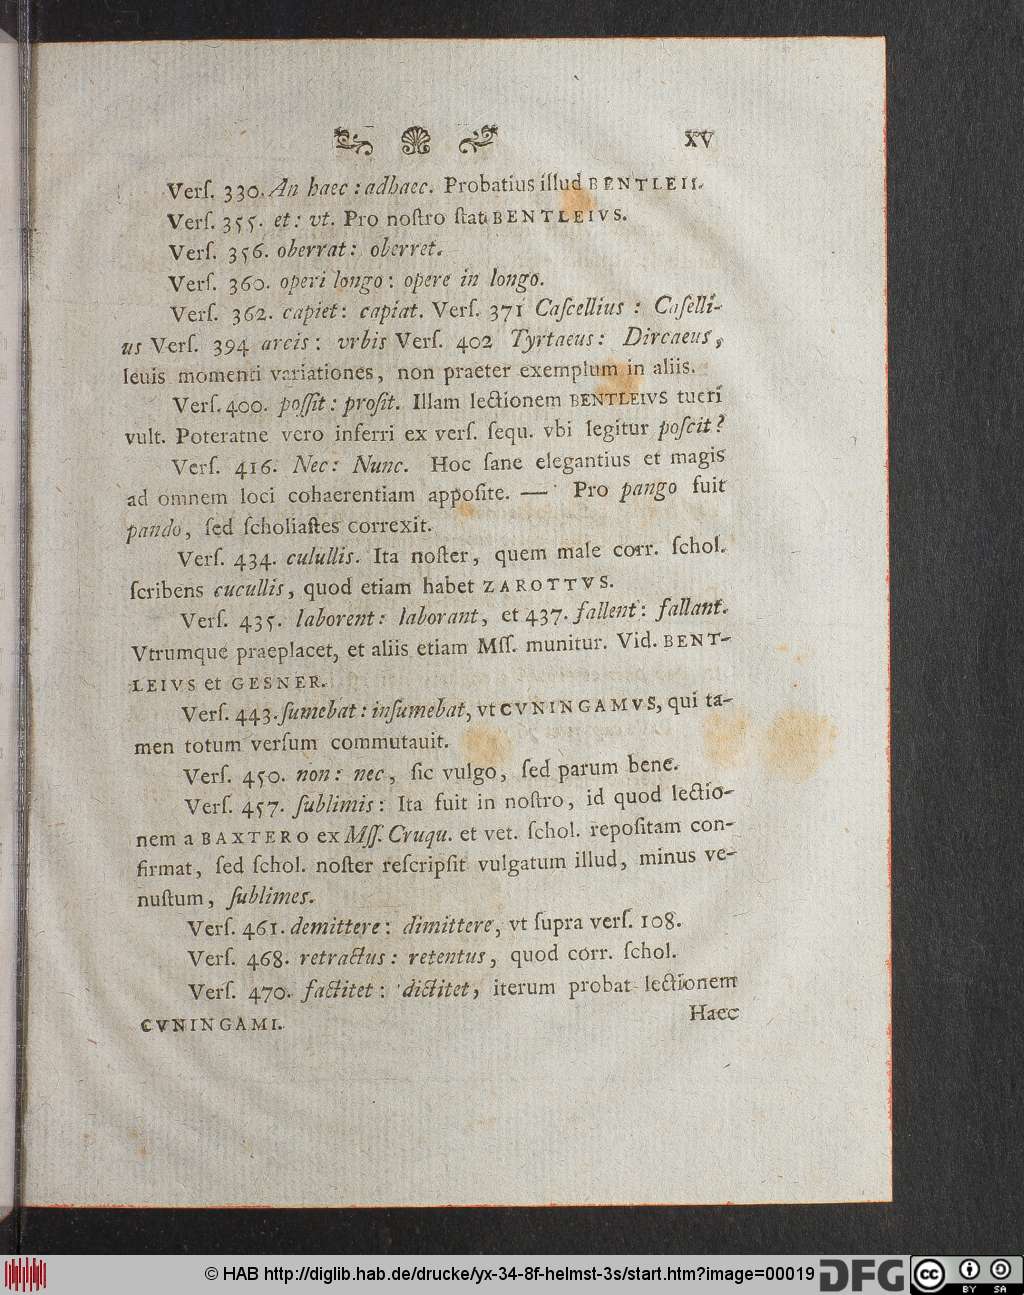 XV
Verſ. 330. An haec : adhaec. Probatius illud BENTLEII.
Verſ. 355. et: vt. Pro noſtro ſtat BENTLEIVS.
Verſ. 356. oberrat: oberret.
Verſ. 360. operi longo: opere in longo.
Verſ. 362. capiet: capiat. Verſ. 371 Caſcellius : Caſelli-
us Verſ. 394 arcis: vrbis Verſ. 402 Tyrtaeus: Dircaeus,
leuis momenti variationes, non praeter exemplum in aliis.
Verſ. 400. poſſit: proſit. Illam lectionem BENTLEIVS tueri
vult. Poteratne vero inferri ex verſ. ſequ. vbi legitur poſcit?
Verſ. 416. Nec: Nunc. Hoc ſane elegantius et magis
ad omnem loci cohaerentiam appoſite. — Pro pango fuit
pando, ſed ſcholiaſtes correxit.
Verſ. 434. culullis. Ita noſter, quem male corr. ſchol.
ſcribens cucullis, quod etiam habet ZAROTTVS.
Verſ. 435. laborent: laborant, et 437. fallent: fallant.
Vtrumque praeplacet, et aliis etiam Mſſ. munitur. Vid. BENT-
LEIVS et GESNER.
Verſ. 443. ſumebat: inſumebat, vt CVNINGAMVS, qui ta-
men totum verſum commutauit.
Verſ. 450. non: nec, ſic vulgo, ſed parum bene.
Verſ. 457. ſublimis: Ita fuit in noſtro, id quod lectio-
nem a BAXTERO ex Mſſ. Cruqu. et vet. ſchol. repoſitam con-
firmat, ſed ſchol. noſter reſcripſit vulgatum illud, minus ve-
nuſtum, ſublimes.
Verſ. 461. demittere: dimittere, vt ſupra verſ. 108.
Verſ. 468. retractus: retentus, quod corr. ſchol.
Verſ. 470. factitet: dictitet, iterum probat lectionem
CVNINGAMI.
Haec
© HAB http://diglib.hab.de/drucke/yx-34-8f-helmst-3s/start.htm?image=00019
DFG
cc BY SA